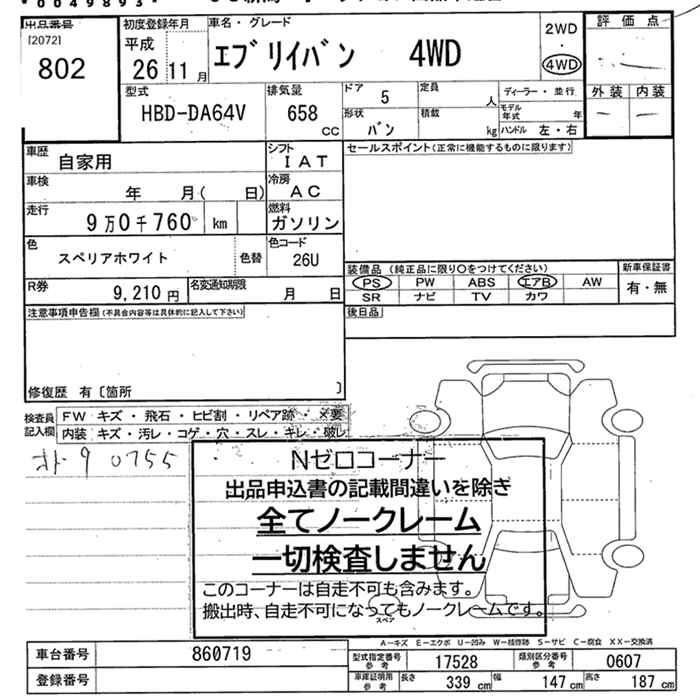 *0049893*
出品番号 初度登録年月 車名・グレード
[2072] 802
平成 26 11月
エブリイバン 4WD
2WD
・
4WD
評価点
外装 内装
― ―
型式 HBD-DA64V
排気量 658 CC
ドア 5
定員 人
ディーラー・並行
形状 バン
積載 kg
モデル年式 年
ハンドル 左・右
車歴 自家用
シフト IAT
セールスポイント(正常に機能するものに限ります)
車検 年 月( 日)
冷房 AC
走行 9万0千760 km
燃料 ガソリン
色 スペリアホワイト 色替
色コード 26U
装備品 (純正品に限り○をつけてください)
新車保証書
PS PW ABS エアB AW
有・無
SR ナビ TV カワ
R券 9,210円
名変通知期限 月 日
注意事項申告欄(不具合内容等は具体的に記入して下さい)
後日品
修復歴 有〔箇所 〕
検査員記入欄
FW キズ・飛石・ヒビ割・リペア跡・×要
内装 キズ・汚レ・コゲ・穴・スレ・キレ・破レ
オト 9 0755
Nゼロコーナー
出品申込書の記載間違いを除き
全てノークレーム
一切検査しません
このコーナーは自走不可も含みます。
搬出時、自走不可になってもノークレームです。
スペア
A-キズ E-エクボ U-凹み W-技修跡 S-サビ C-腐食 XX-交換済
車台番号 860719
型式指定番号 参考 17528
類別区分番号 参考 0607
登録番号
車庫証明用 参考
長さ 339 cm
幅 147 cm
高さ 187 cm